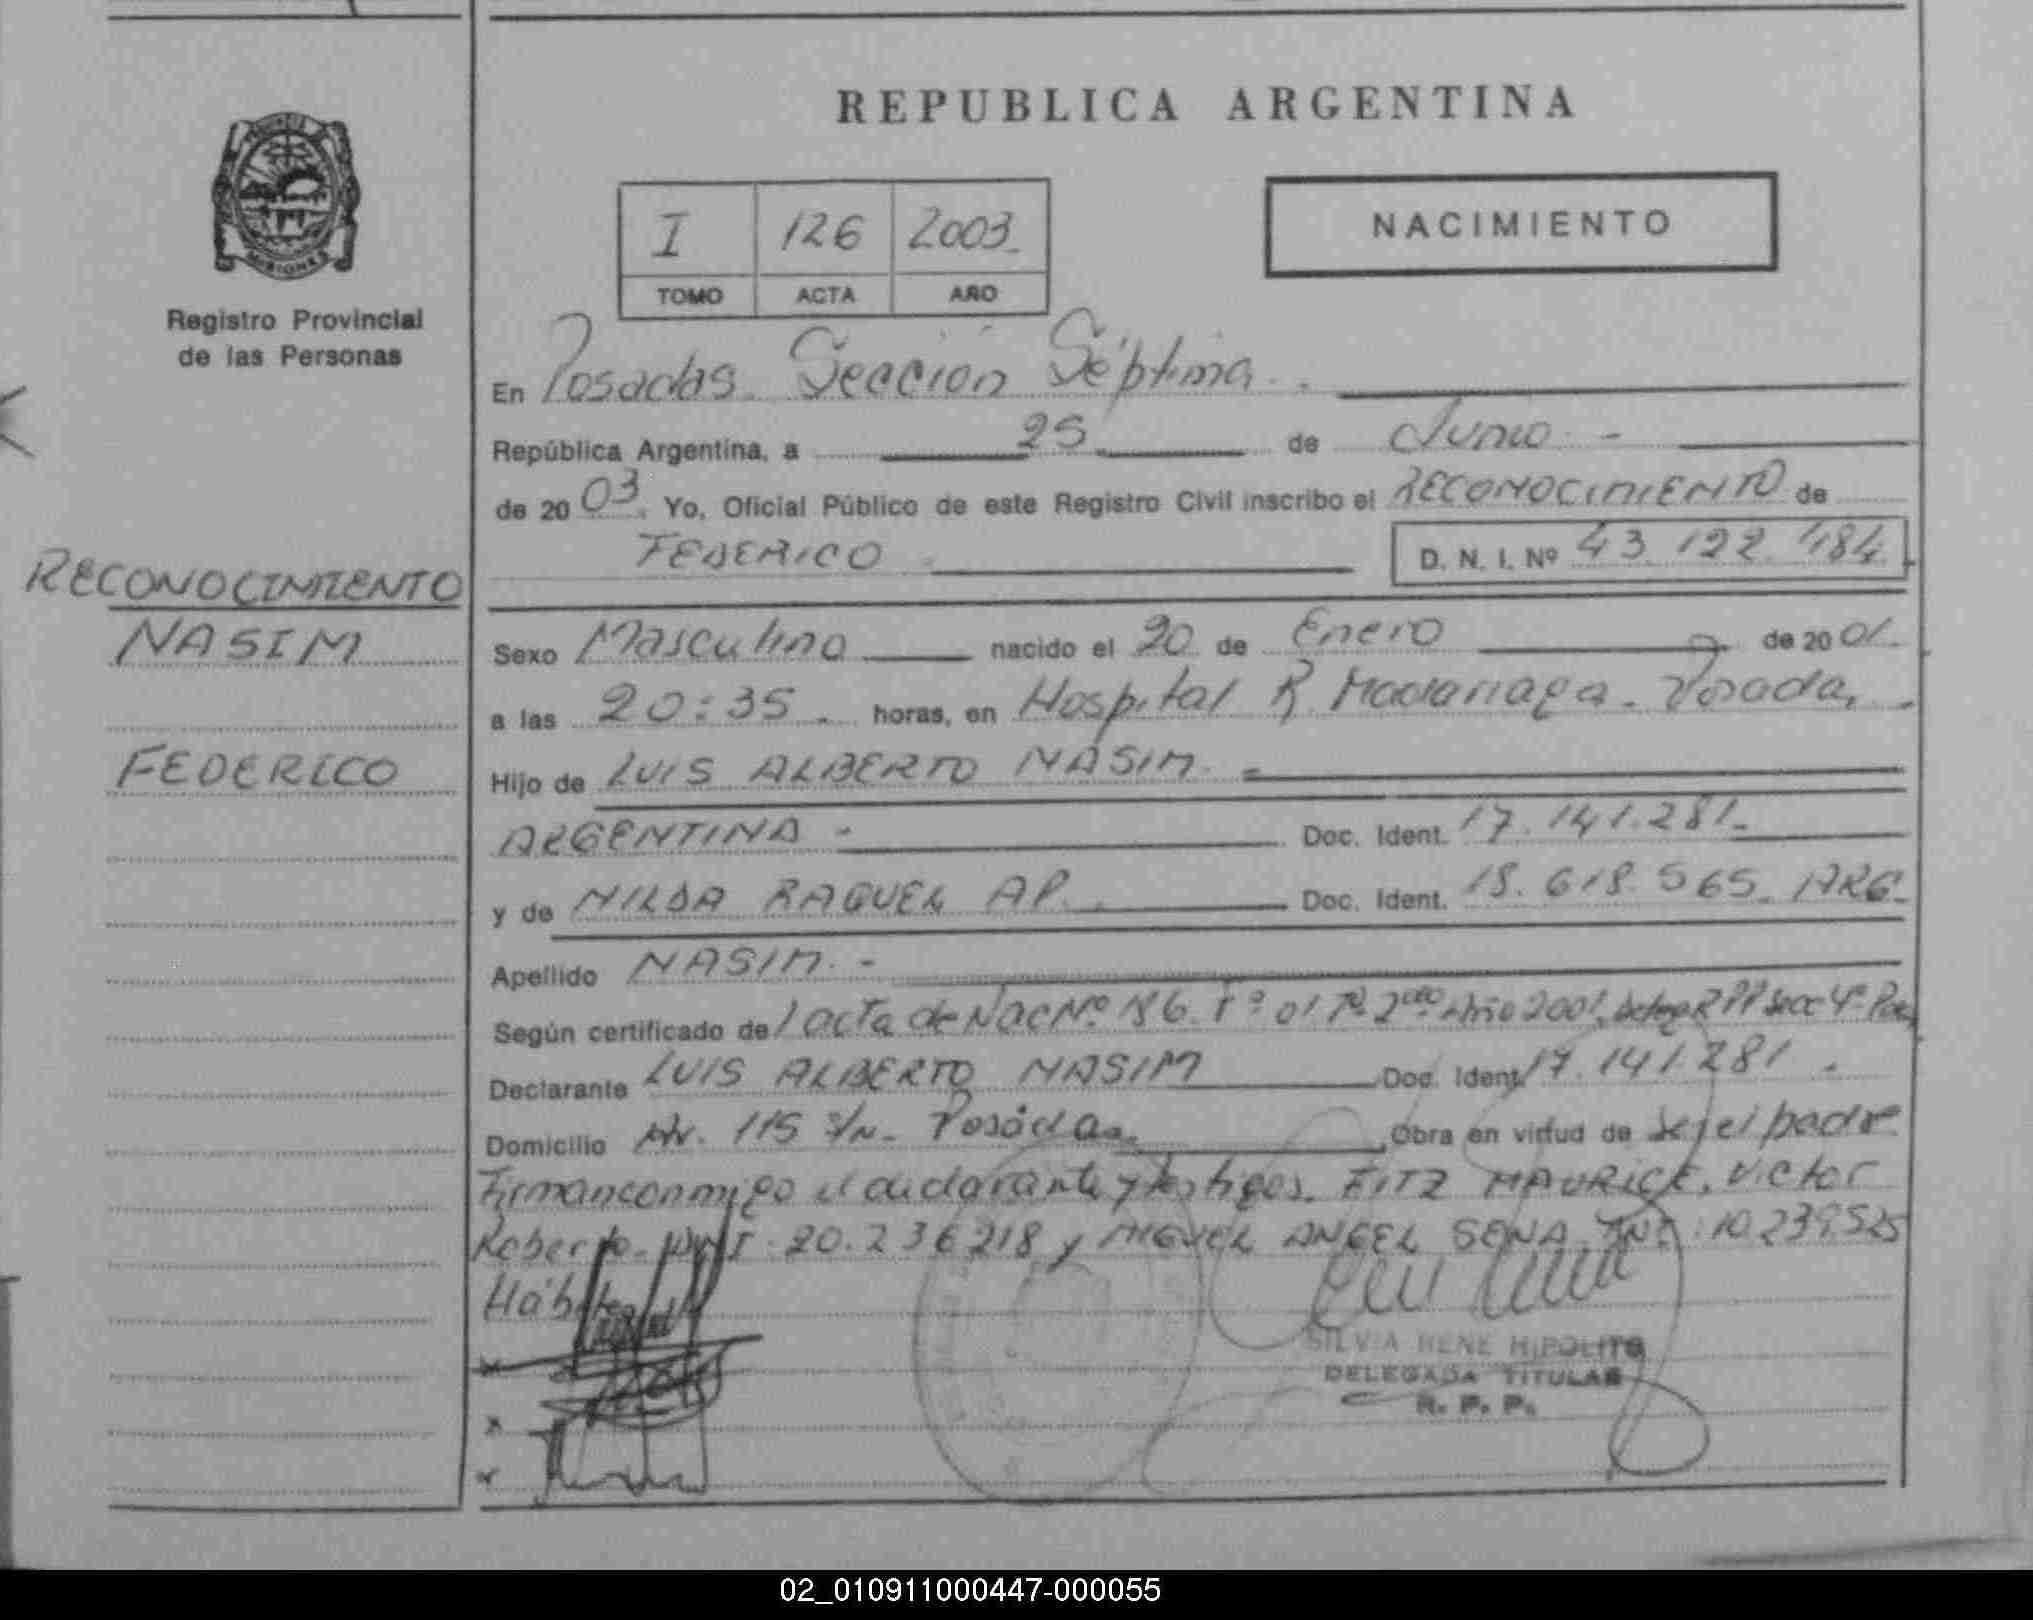 REPUBLICA ARGENTINA
MISIONES
Registro Provincial
de las Personas
I 126 2003
TOMO ACTA AÑO
NACIMIENTO
En Posadas. Sección Séptima.
República Argentina, a 25 de Junio -
de 2003. Yo, Oficial Público de este Registro Civil inscribo el RECONOCIMIENTO de
FEDERICO D. N. I. Nº 43.122.484
RECONOCIMIENTO
NASIM
FEDERICO
Sexo Masculino nacido el 20 de Enero de 2001.
a las 20:35. horas, en Hospital R. Madariaga. Posadas.
Hijo de LUIS ALBERTO NASIM.
ARGENTINA - Doc. Ident. 17.141.281.
y de NILDA RAQUEL AP. Doc. Ident. 18.618.565. ARG.
Apellido NASIM. -
Según certificado de acta de Nac Nº 186. Tº 01 2 Año 2001, RPP Secc 4º
Declarante LUIS ALBERTO NASIM Doc. Ident. 17.141.281.
Domicilio Av. 115 S/n. Posadas. Obra en virtud de ser el padre
Firman conmigo el declarante y testigos. FITZ MAURICE, Victor
Roberto. DNI. 20.236.218 y MIGUEL ANGEL SENA DNI: 10.239.525
Hábiles
SILVIA IRENE HIPOLITO
DELEGADA TITULAR
R. P. P.
02_010911000447-000055